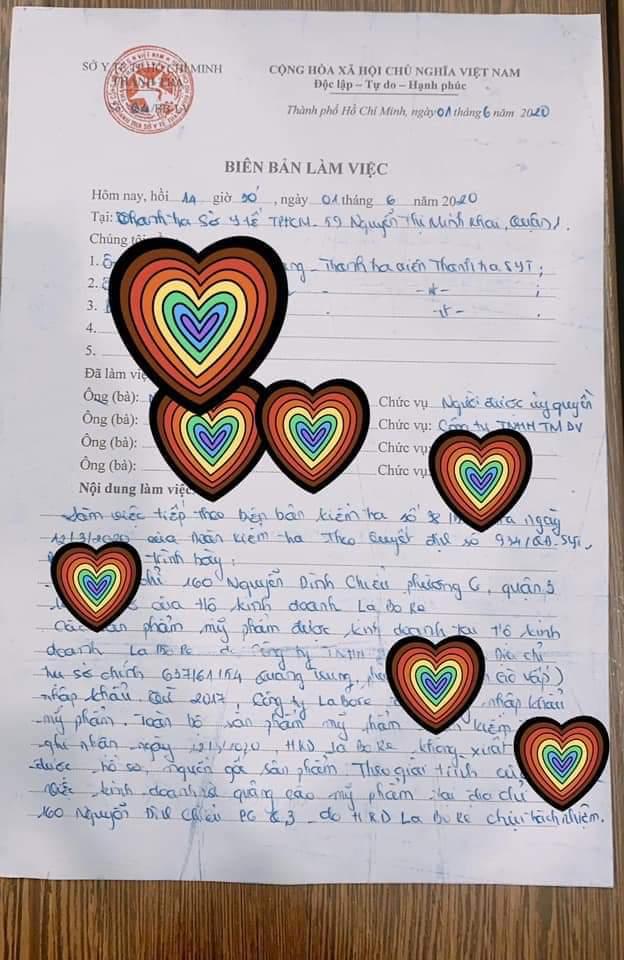 SỞ Y TẾ TP HỒ CHÍ MINH
THANH TRA
CỘNG HÒA XÃ HỘI CHỦ NGHĨA VIỆT NAM
Độc lập – Tự do – Hạnh phúc
Thành phố Hồ Chí Minh, ngày 01 tháng 6 năm 2020
BIÊN BẢN LÀM VIỆC
Hôm nay, hồi 14 giờ 30', ngày 01 tháng 6 năm 2020
Tại: Thanh tra Sở Y tế TPHCM - 59 Nguyễn Thị Minh Khai, Quận 1.
Chúng tôi
1. Thanh tra viên Thanh tra SYT;
2.
3.
4.
5.
Đã làm việ
Ông (bà): Chức vụ Người được ủy quyền
Ông (bà): Chức vụ: Công ty TNHH TM DV
Ông (bà): Chức vụ:
Ông (bà): Chức vụ:
Nội dung làm việc:
Làm việc tiếp theo biên bản kiểm tra số ngày
12/3/2020 của Đoàn kiểm tra Theo Quyết định số 934/QĐ-SYT.
trình bày:
chỉ 160 Nguyễn Đình Chiểu phường 6, quận 3
của Hộ kinh doanh La Bo Re
Các sản phẩm mỹ phẩm được kinh doanh tại Hộ kinh
doanh La Bo Re do Công ty TNHH Địa chỉ
trụ sở chính 637/61/54 Quang Trung, Gò Vấp)
nhập khẩu. Từ 2017, Công ty La Bore nhập khẩu
mỹ phẩm. Toàn bộ sản phẩm mỹ phẩm kiểm
ghi nhận ngày 12/3/2020, HKD La Bo Re không xuất
được hồ sơ, nguồn gốc sản phẩm. Theo giải trình của
việc kinh doanh và quảng cáo mỹ phẩm tại địa chỉ
160 Nguyễn Đình Chiểu P6 Q.3 do HKD La Bo Re chịu trách nhiệm.